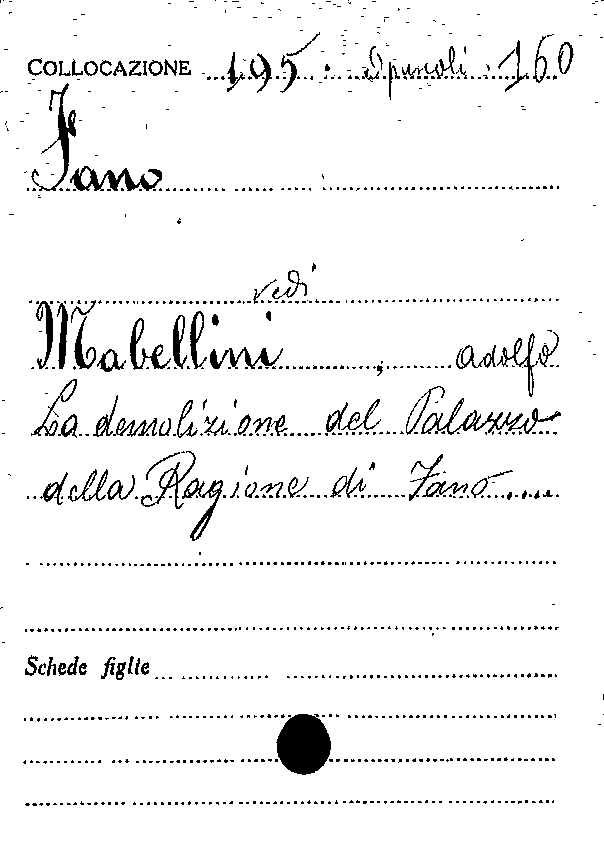 COLLOCAZIONE 195. Opuscoli. 160
Fano
vedi
Mabellini, adolfo
La demolizione del Palazzo
della Ragione di Fano.....
Schede figlie